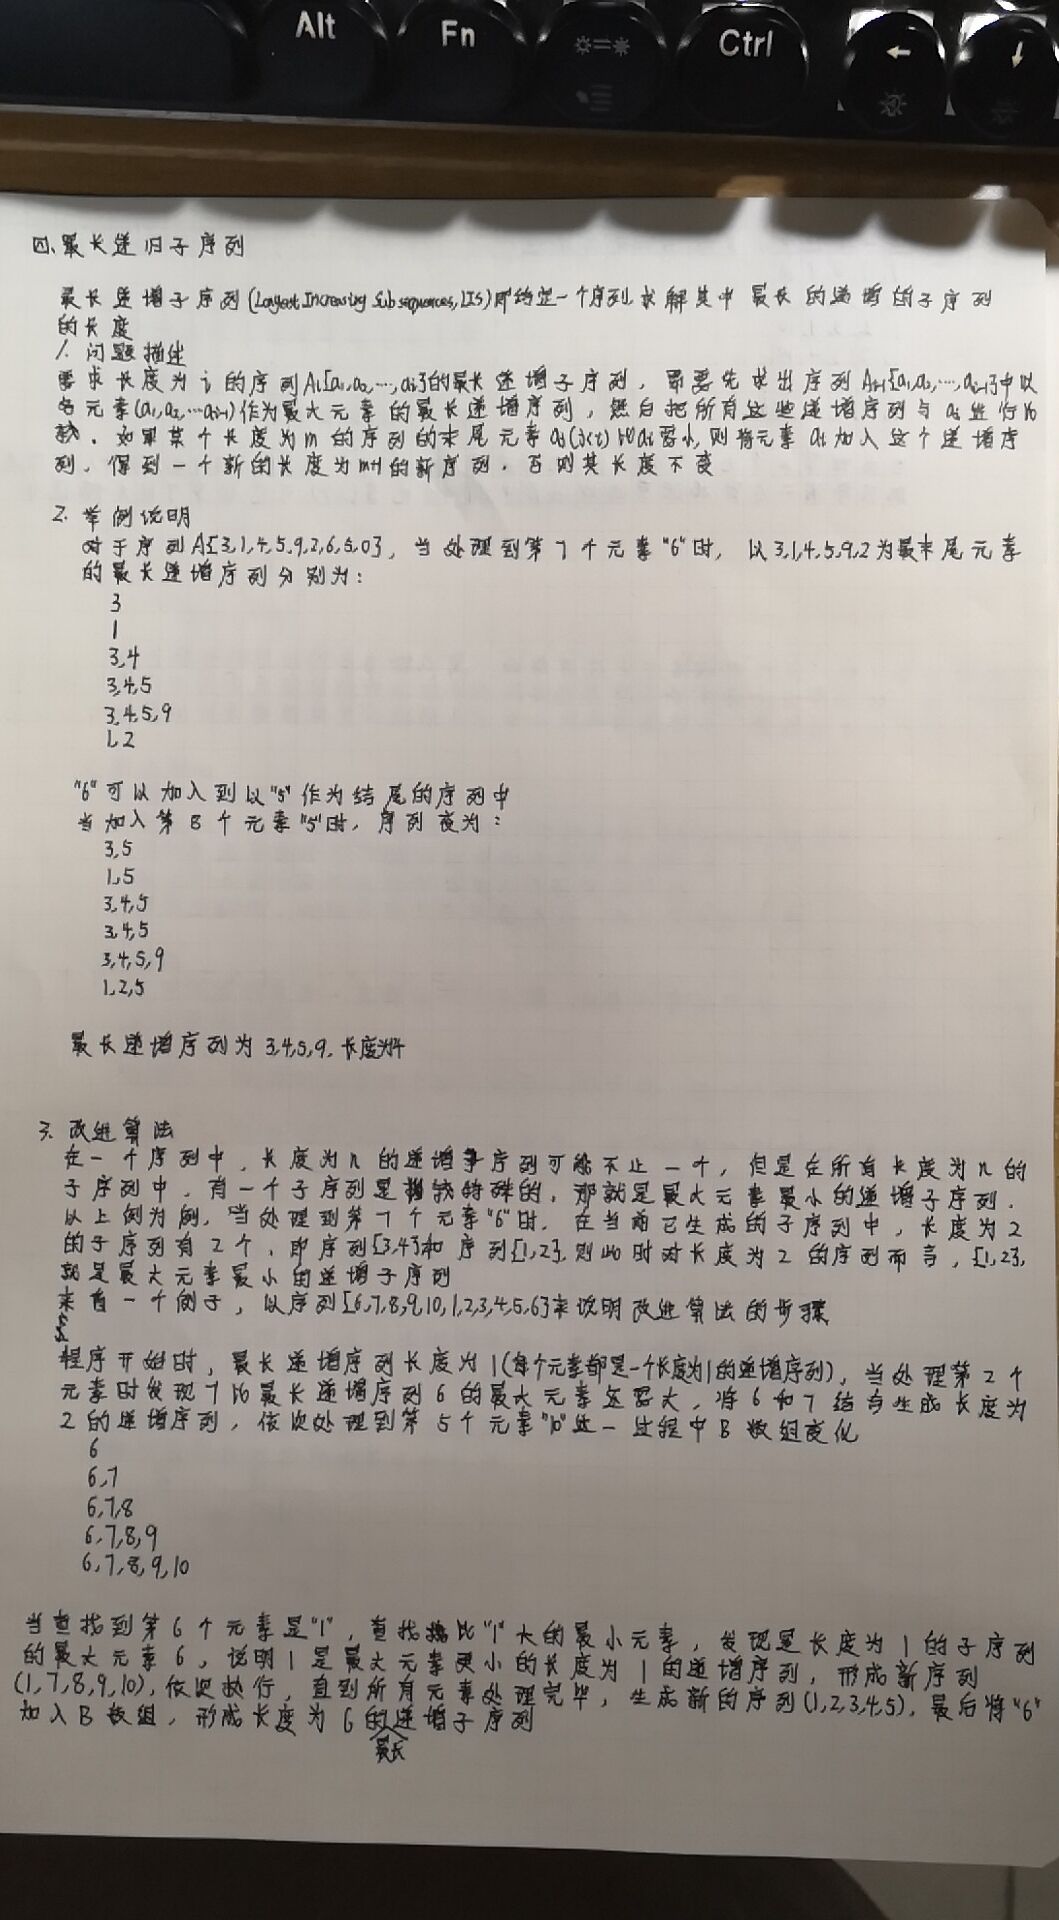 Alt
Fn
Ctrl
四、最长递归子序列
最长递增子序列(Longest Increasing Subsequences,LIS)即给定一个序列,求解其中最长的递增的子序列
的长度
1. 问题描述
要求长度为i的序列Ai{a₁,a₂,…,ai}的最长递增子序列，需要先求出序列Ai-1{a₁,a₂,…,ai-1}中以
各元素(a₁,a₂,…ai-1)作为最大元素的最长递增序列，然后把所有这些递增序列与ai进行比
较，如果某个长度为m的序列的末尾元素aj(j<i)比ai要小,则将元素ai加入这个递增序
列，得到一个新的长度为m+1的新序列，否则其长度不变
2. 举例说明
对于序列A{3,1,4,5,9,2,6,5,0}，当处理到第7个元素"6"时，以3,1,4,5,9,2为最末尾元素
的最长递增序列分别为：
3
1
3,4
3,4,5
3,4,5,9
1,2
"6"可以加入到以"5"作为结尾的序列中
当加入第8个元素"5"时，序列变为：
3,5
1,5
3,4,5
3,4,5
3,4,5,9
1,2,5
最长递增序列为3,4,5,9,长度为4
3. 改进算法
在一个序列中，长度为n的递增子序列可能不止一个，但是在所有长度为n的
子序列中，有一个子序列是比较特殊的，那就是最大元素最小的递增子序列.
以上例为例，当处理到第7个元素"6"时，在当前已生成的子序列中，长度为2
的子序列有2个，即序列{3,4}和序列{1,2},则此时对长度为2的序列而言，{1,2},
就是最大元素最小的递增子序列
来看一个例子，以序列{6,7,8,9,10,1,2,3,4,5,6}来说明改进算法的步骤
程序开始时，最长递增序列长度为1(每个元素都是一个长度为1的递增序列)，当处理第2个
元素时发现7比最长递增序列6的最大元素还要大，将6和7结合生成长度为
2的递增序列，依次处理到第5个元素"10"这一过程中B数组变化
6
6,7
6,7,8
6,7,8,9
6,7,8,9,10
当查找到第6个元素是"1"，查找比"1"大的最小元素，发现是长度为1的子序列
的最大元素6，说明1是最大元素更小的长度为1的递增序列，形成新序列
(1,7,8,9,10),依次执行，直到所有元素处理完毕，生成新的序列(1,2,3,4,5),最后将"6"
加入B数组，形成长度为6的递增子序列
最长